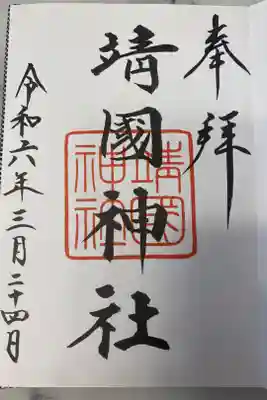 奉拝
靖國神社
靖國神社
令和六年三月二十四日